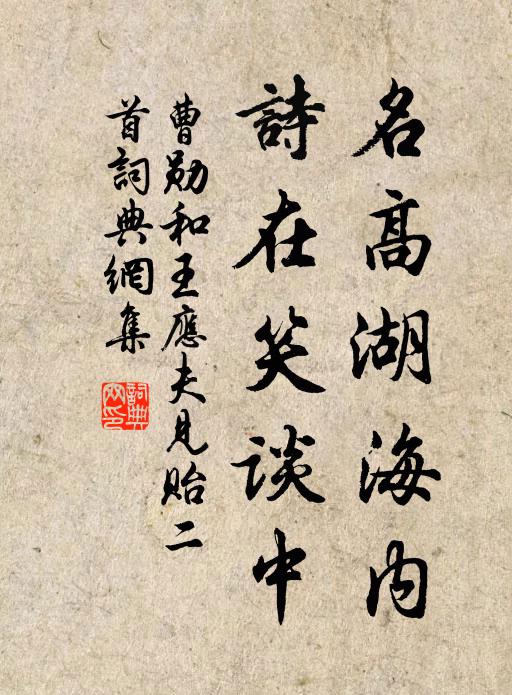 名高湖海内
詩在笑談中
曹勛和王應夫見貽二
首詞典網集
詞典
网印